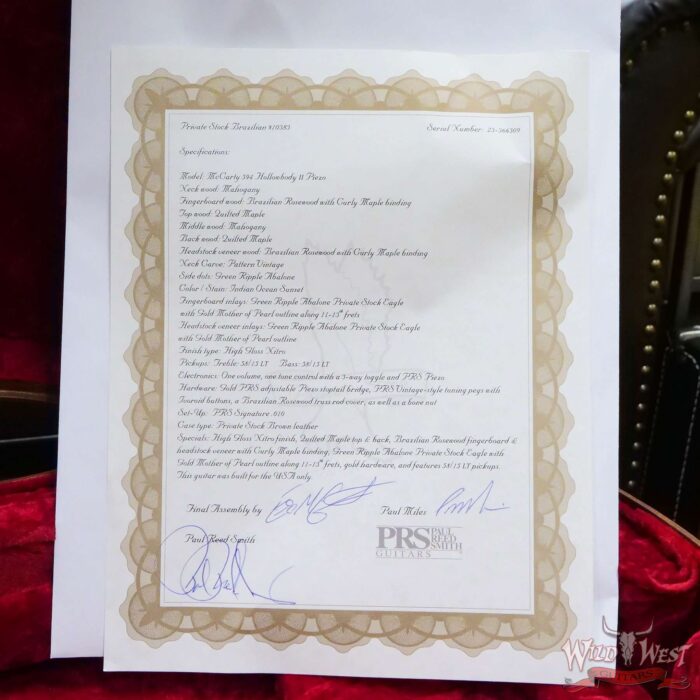 Private Stock Brazilian #10383 Serial Number: 23-366309
Specifications:
Model: McCarty 594 Hollowbody II Piezo
Neck wood: Mahogany
Fingerboard wood: Brazilian Rosewood with Curly Maple binding
Top wood: Quilted Maple
Middle wood: Mahogany
Back wood: Quilted Maple
Headstock veneer wood: Brazilian Rosewood with Curly Maple binding
Neck Carve: Pattern Vintage
Side dots: Green Ripple Abalone
Color / Stain: Indian Ocean Sunset
Fingerboard inlays: Green Ripple Abalone Private Stock Eagle
with Gold Mother of Pearl outline along 11-13th frets
Headstock veneer inlays: Green Ripple Abalone Private Stock Eagle
with Gold Mother of Pearl outline
Finish type: High Gloss Nitro
Pickups: Treble: 58/15 LT Bass: 58/15 LT
Electronics: One volume, one tone control with a 3-way toggle and PRS Piezo
Hardware: Gold PRS adjustable Piezo stoptail bridge, PRS Vintage-style tuning pegs with
Ivoroid buttons, a Brazilian Rosewood truss rod cover, as well as a bone nut
Set-Up: PRS Signature .010
Case type: Private Stock Brown leather
Specials: High Gloss Nitro finish, Quilted Maple top & back, Brazilian Rosewood fingerboard &
headstock veneer with Curly Maple binding, Green Ripple Abalone Private Stock Eagle with
Gold Mother of Pearl outline along 11-13th frets, gold hardware, and features 58/15 LT pickups.
This guitar was built for the USA only
Final Assembly by Paul Miles
Paul Reed Smith
PRS PAUL REED SMITH
GUITARS
WILD WEST
GUITARS